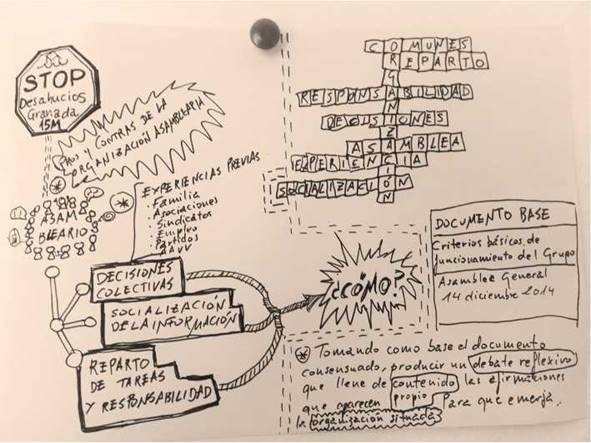 STOP
Desahucios
Granada
15M
PROS Y CONTRAS DE LA
ORGANIZACIÓN ASAMBLEARIA
ASAM
BLEARIO
EXPERIENCIAS PREVIAS
· Familia
· Asociaciones
· Sindicatos
· Empleo
· Partidos
· AAVV
DECISIONES
COLECTIVAS
SOCIALIZACIÓN
DE LA INFORMACIÓN
REPARTO
DE TAREAS
Y RESPONSABILIDAD
COMUNES
REPARTO
RESPONSABILIDAD
DECISIONES
ASAMBLEA
EXPERIENCIA
SOCIALIZACIÓN
ORGANIZACIÓN
¿CÓMO?
DOCUMENTO BASE
Criterios básicos de
funcionamiento del Grupo
Asamblea General
14 diciembre 2014
* Tomando como base el documento
consensuado, producir un debate reflexivo
que llene de contenido las afirmaciones
que aparecen propio, para que emerja,
la organización situada